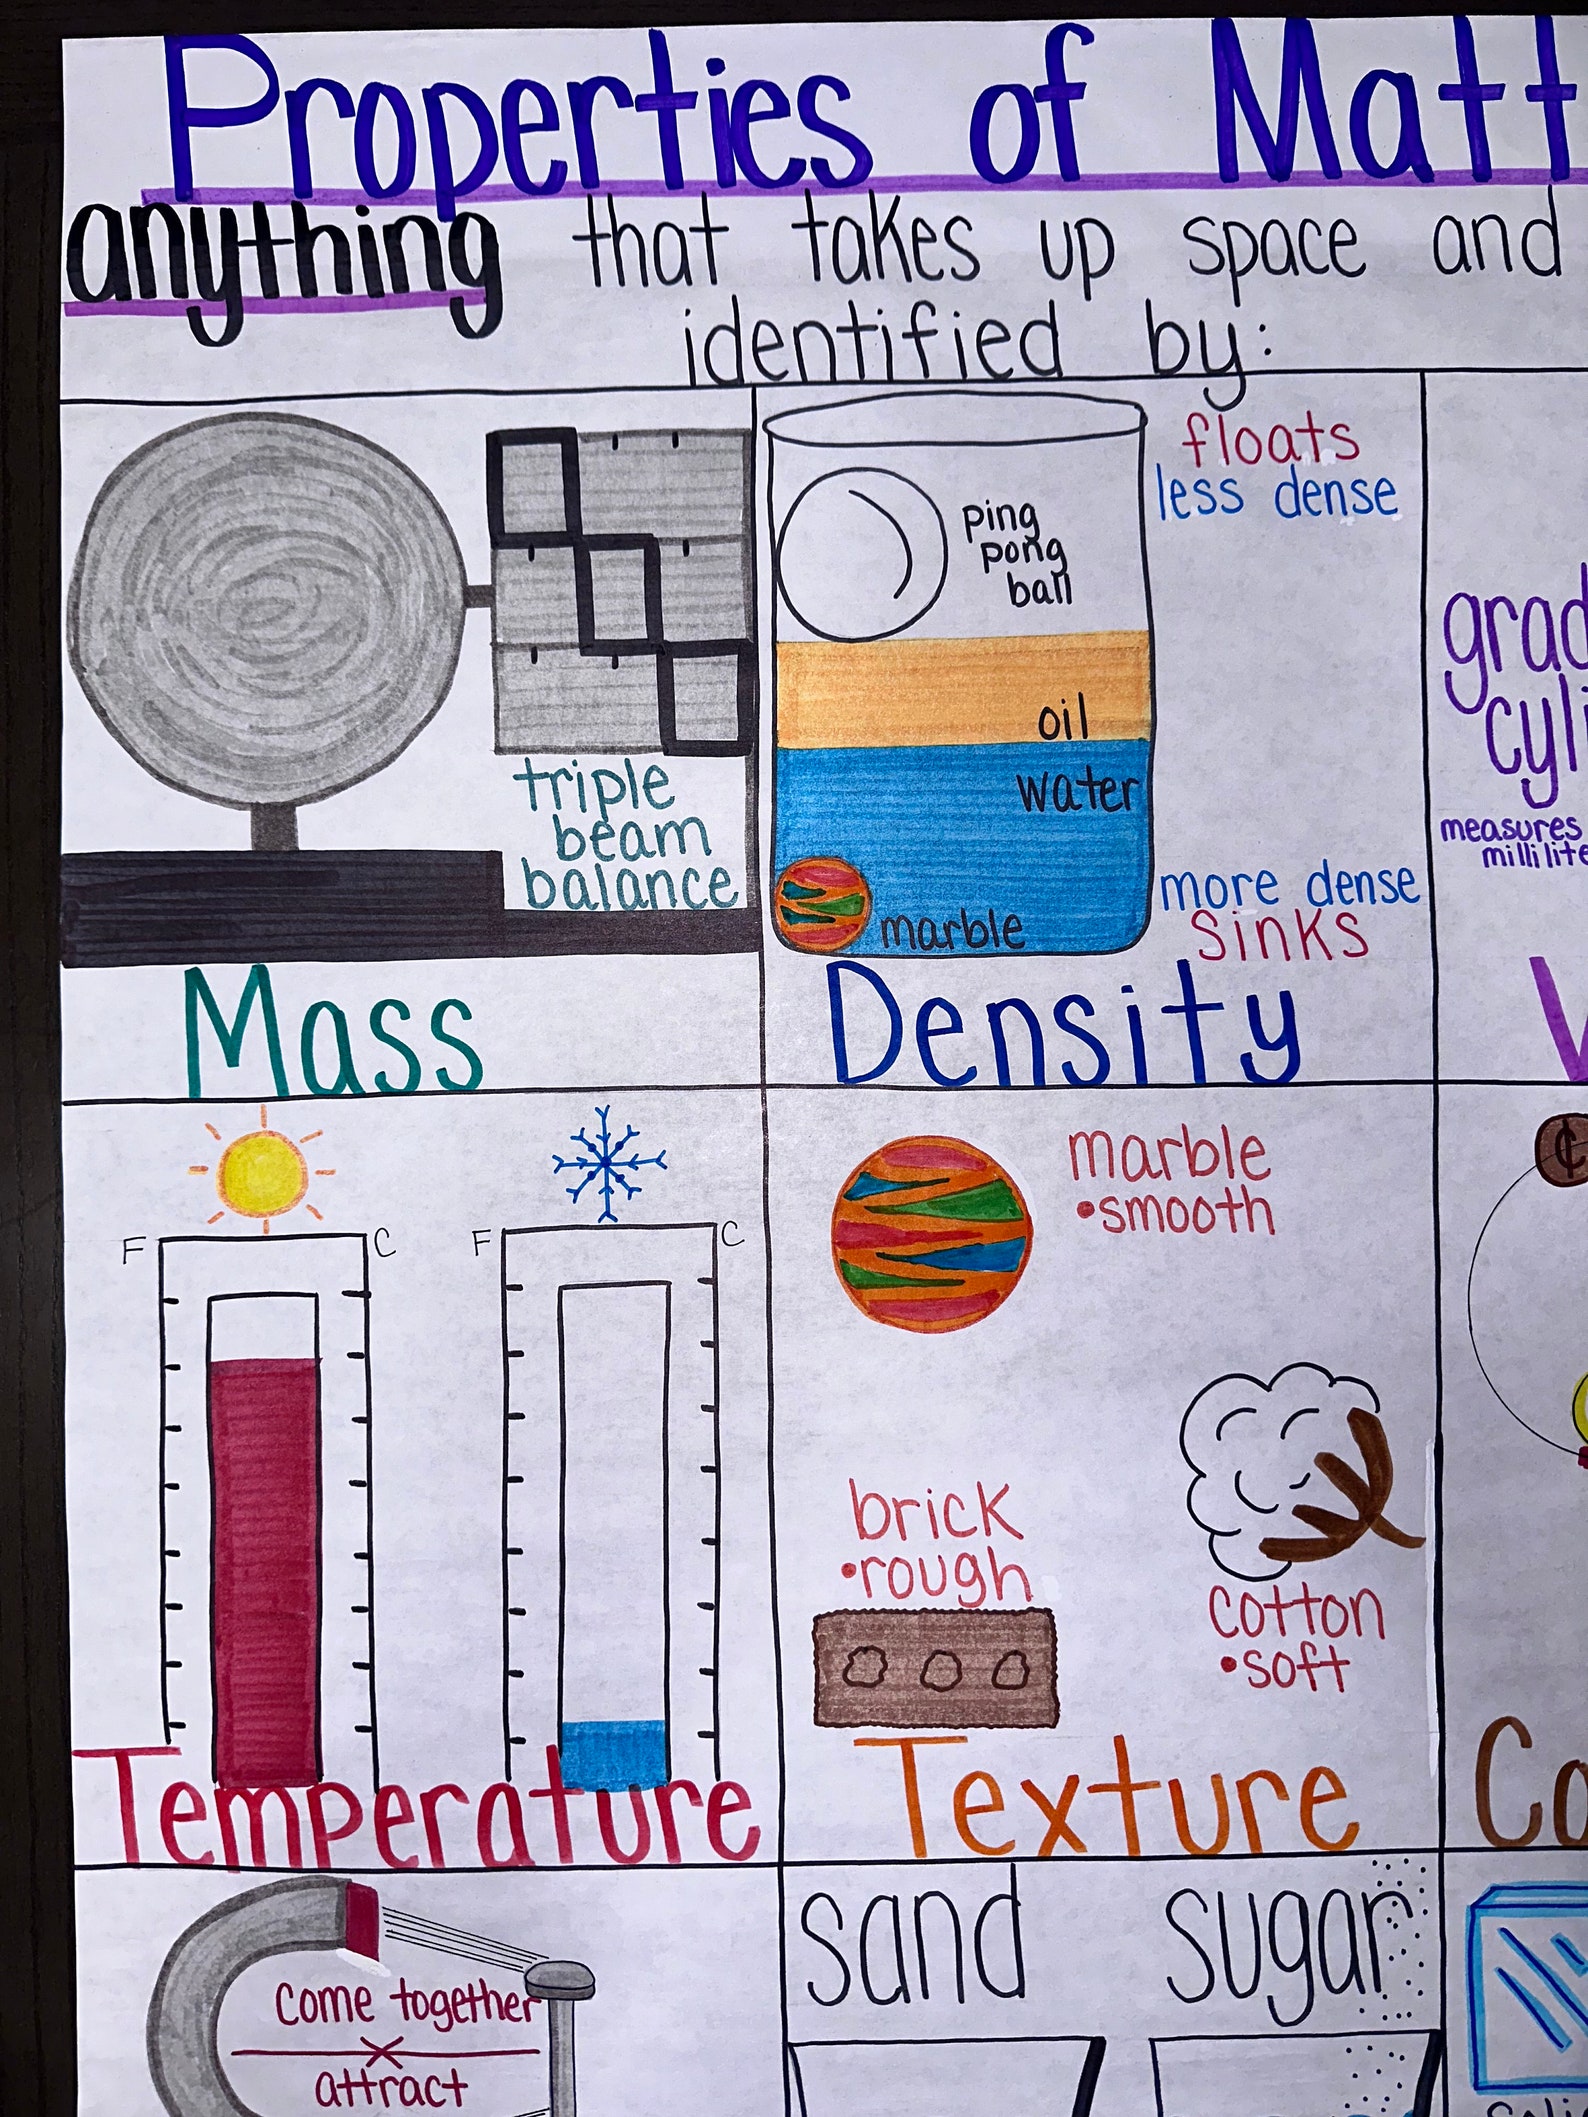 Properties of Matt
anything that takes up space and
identified by:
triple
beam
balance
Mass
floats
less dense
ping
pong
ball
oil
water
marble
more dense
sinks
Density
grad
cyli
measures
millilite
V
F
C
F
C
Temperature
marble
•smooth
brick
•rough
cotton
•soft
Texture
¢
Co
come together
attract
sand
sugar